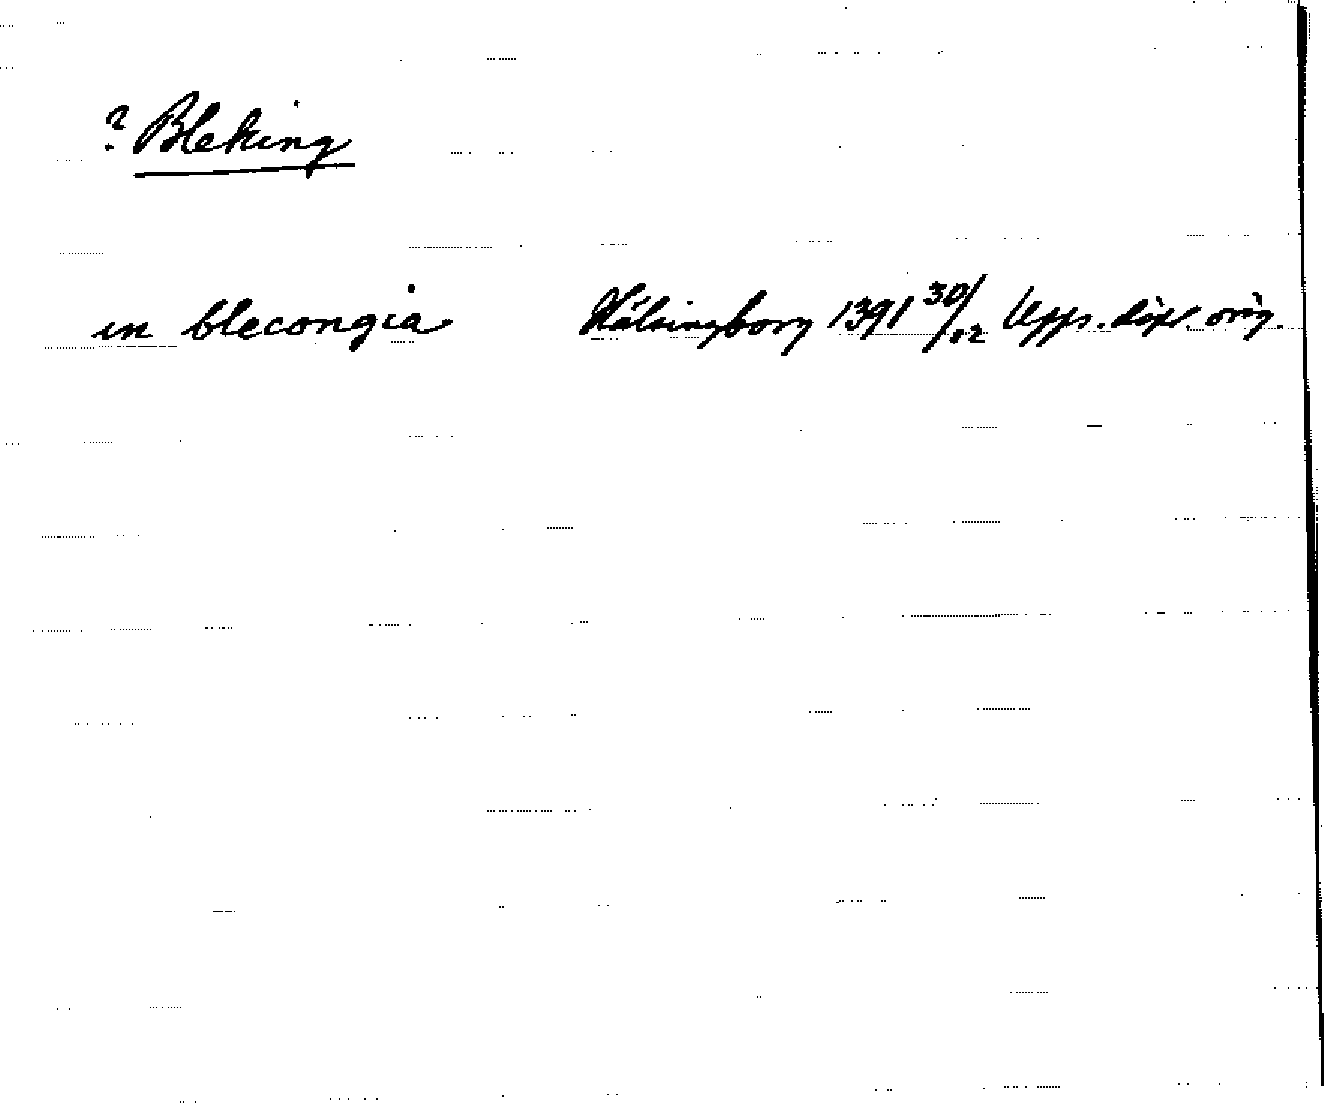 ? Bleking
in blecongia Hälsingborg 1391 30/12 Upps. dipl. orig.